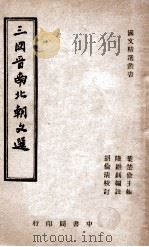 國文精選叢書
葉楚傖主編
陸維釗編註
胡倫清校訂
三國晉南北朝文選
正中書局印行